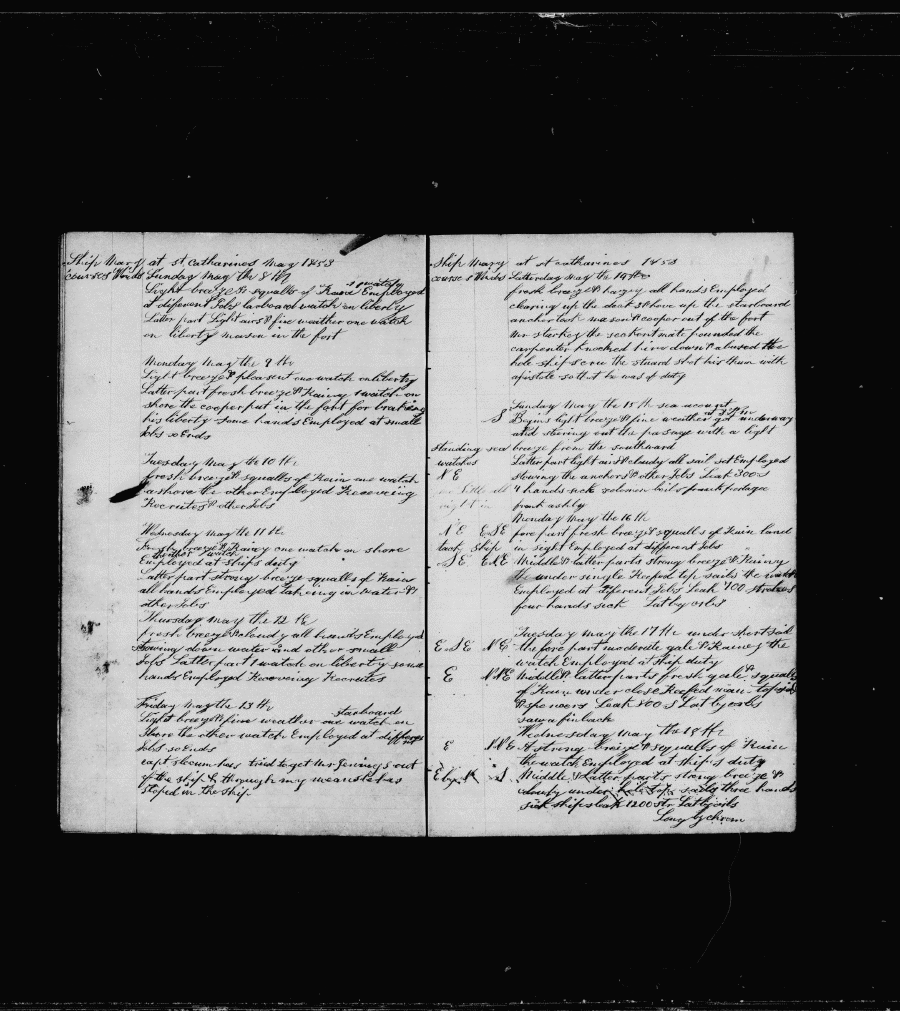 Ship Mary at st Catharines May 1853
courses Winds Sunday May the 8 th
1 watch
Light breeze & squalls of Rain Employed
at different Jobs larboard watch on liberty
Latter part Light airs & fine weather one watch
on liberty mason in the fort
Monday May the 9 th
Light breeze & pleasent one watch on liberty
Latter part fresh breeze & Rainy 1 watch on
shore the cooper put in the fort for breaking
his liberty Some hands Employed at small
Jobs so Ends
Tuesday May the 10 th
fresh breeze & squalls of Rain one watch
ashore the other Employed Receveing
Recruites & other Jobs
Wednesday May the 11 th
Fresh breeze & Rainy one watch on shore
the other watch
Employed at ships duty
Latter part strong breeze squalls of Rain
all hands Employed takeing in water &
other Jobs
Thursday may the 12 th
fresh breeze & cloudy all hands Employed
stowing down water and other small
Jobs Latter part 1 watch on liberty some
hands Employed Receveing Recruites
Friday May the 13 th
starboard
Light breeze & fine weather one watch on
shore the other watch Employed at different
Jobs so Ends
capt slocum has tried to get Mr Jenings out
of the ship & through my means he has
stoped in the ship
Ship Mary at st catharines 1853
course & Winds Satterday May the 14 th
fresh breeze & hazey all hands Employed
clearing up the deck & hove up the starboard
anchor took mason & cooper out of the fort
Mr starkey the second mate pounded the
carpenter knocked him down & abused the
hole ships crew the stuard shot his thum with
a pistole so that he was of duty
Sunday May the 15 th sea account
S Begins light breeze & fine weather got underway
and steering out the pasage with a light
Standing sea breeze from the southward
watches Latter part light airs & cloudy all sail set Employed
N E stowing the anchors & other Jobs Leak 300 s
4 hands sick
frank ashby
Monday May the 16 th
N E ESE fore part fresh breeze & squalls of Rain land
tack ship in sight Employed at different Jobs
S E ENE Middle & latter parts strong breeze & Rainy
under single Reefed top sails the watch
Employed at diferent Jobs Leak 400 strokes
four hands sick Lat by obs
Tuesday may the 17 th under short sail
E S E N E the fore part moderate gale & Rainey the
watch Employed at Ship duty
E NNE Middle & latter parts fresh gale & squalls
of Rain under close Reefed main top sail
& spencers Leak 800 S Lat by obs
saw a finback
Wednesday May the 18 th
E NNE A strong breeze & squalls of Rain
the watch Employed at ship's duty
E by N Middle & Latter parts strong breeze &
clowdy under hole top sails three hands
sick ship leak 1200 str Lat by obs
Long by chrom